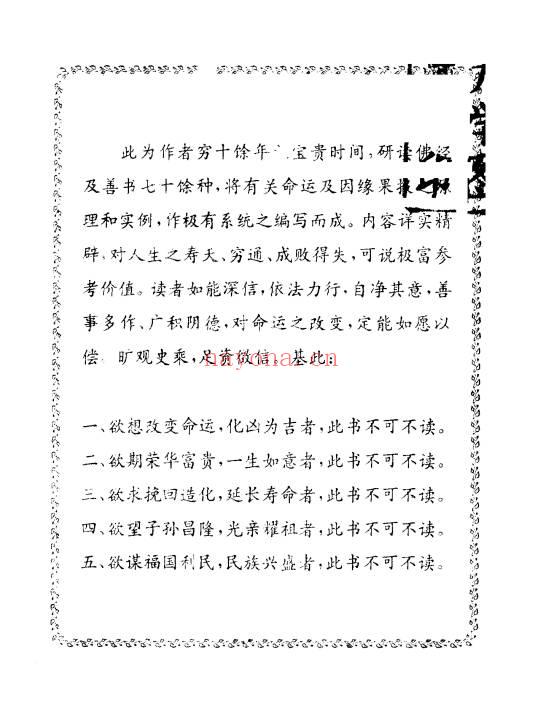 此为作者穷十馀年 宝贵时间,研 佛经
及善书七十馀种,将有关命运及因缘果
理和实例,作极有系统之编写而成。内容详实精
辟,对人生之寿夭、穷通、成败得失,可说极富参
考价值。读者如能深信,依法力行,自净其意,善
事多作、广积阴德,对命运之改变,定能如愿以
偿 旷观史乘,足资徵信。基此:
nayona.cn
一、欲想改变命运,化凶为吉者,此书不可不读。
二、欲期荣华富贵,一生如意者,此书不可不读。
三、欲求挽回造化,延长寿命者,此书不可不读。
四、欲望子孙昌隆,光亲耀祖者,此书不可不读。
五、欲谋福国利民,民族兴盛者,此书不可不读。